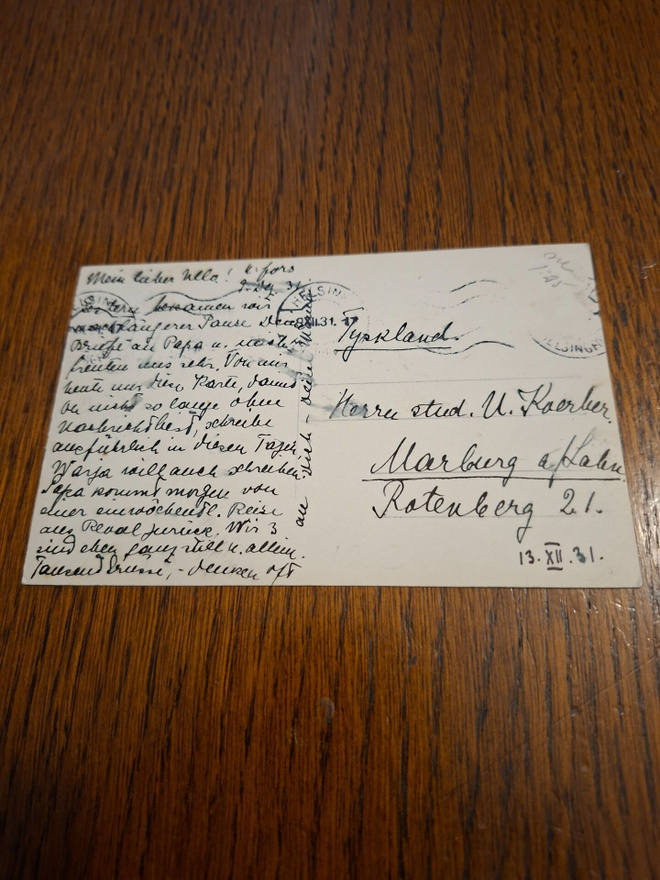 Mein lieber Ulla! H:fors
9. Dez. 31.
Gestern bekamen wir
nach längerer Pause Deine
Briefe an Papa u. mich,
freuten uns sehr. Von mir
heute nur eine Karte, damit
Du nicht so lange ohne
Nachricht bist, schreibe
ausführlich in diesen Tagen
Warja will auch schreiben,
Papa kommt morgen von
einer einwöchentl. Reise
aus Reval zurück. Wir 3
sind eben ganz still u. allein.
Tausend Grüsse, - denken oft
an Dich - Deine
HELSIN
XII.31.
HELSINGF
Tyskland.
Herrn stud. U. Koerber.
Marburg a/Lahn.
Rotenberg 21.
13.XII.31.